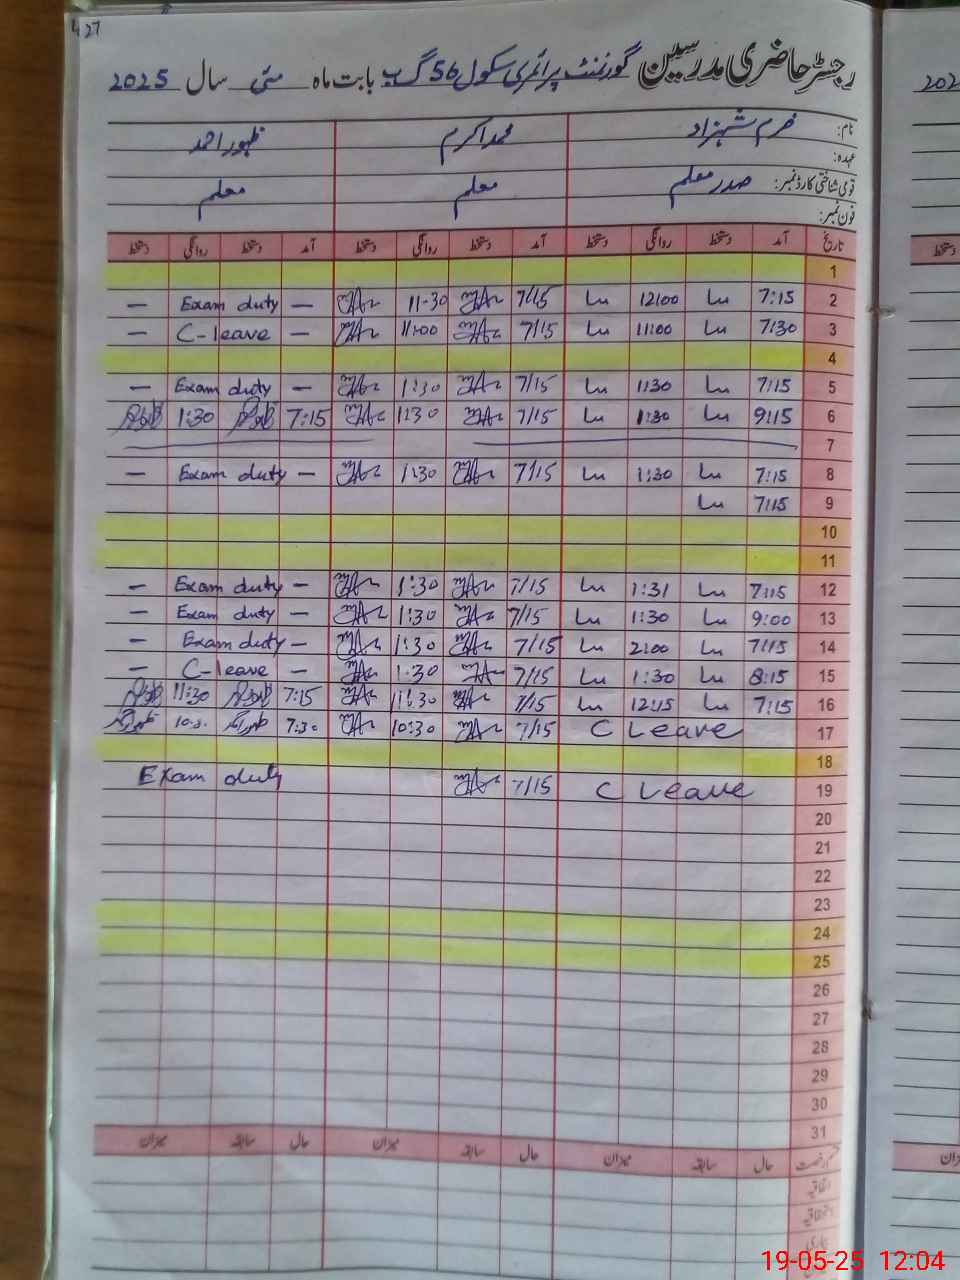 427
رجسٹر حاضری مدرسین گورنمنٹ پرائمری سکول 56 گ ب بابت ماہ مئی سال 2025
نام: خرم شہزاد محمد اکرم ظہور احمد
عہدہ:
قومی شناختی کارڈ نمبر: صدر معلم معلم معلم
فون نمبر:
تاریخ آمد دستخط روانگی دستخط آمد دستخط روانگی دستخط آمد دستخط روانگی دستخط
1
2 7:15 12:00 7/15 11-30 — Exam duty —
3 7:30 11:00 7/15 11:00 — C-leave —
4
5 7:15 1:30 7/15 1:30 — Exam duty —
6 9:15 1:30 7/15 1:30 7:15 1:30
7
8 7:15 1:30 7/15 1:30 — Exam duty —
9 7:15
10
11
12 7:15 1:31 7/15 1:30 — Exam duty —
13 9:00 1:30 7/15 1:30 — Exam duty —
14 7:15 2:00 7/15 1:30 — Exam duty —
15 8:15 1:30 7/15 1:30 — C-leave —
16 7:15 12:15 7/15 11:30 7:15 11:30
17 C Leave 7/15 10:30 7:30 10:30
18
19 C Leave 7/15 Exam duty
20
21
22
23
24
25
26
27
28
29
30
31
حال سابقہ میزان حال سابقہ میزان حال سابقہ میزان
اتفاقیہ
استحقاقیہ
202
دستخط
19-05-25 12:04